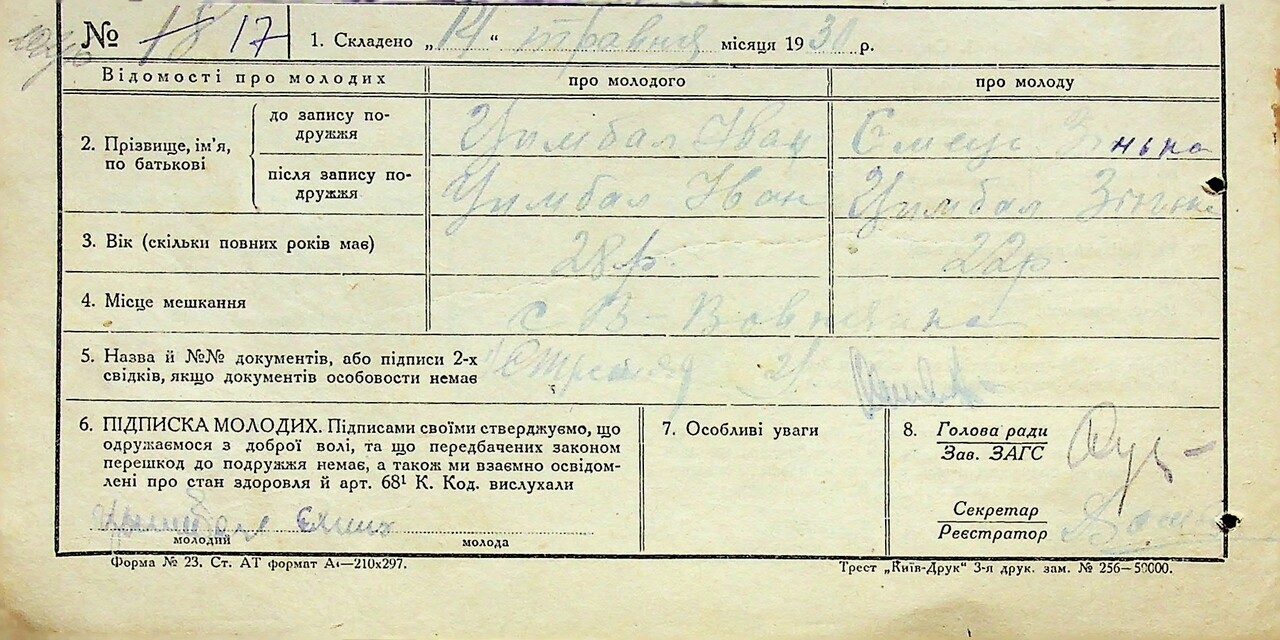 № 18 17 1. Складено „14“ травня місяця 1930 р.
Відомості про молодих про молодого про молоду
2. Прізвище, ім'я, по батькові
до запису подружжя Цимбал Іван Смець Зінька
після запису подружжя Цимбал Іван Цимбал Зінька
3. Вік (скільки повних років має) 28 р. 22 р.
4. Місце мешкання с В-Вовнянка
5. Назва й №№ документів, або підписи 2-х
свідків, якщо документів особовости немає
6. ПІДПИСКА МОЛОДИХ. Підписами своїми стверджуємо, що
одружаємося з доброї волі, та що передбачених законом
перешкод до подружжя немає, а також ми взаємно освідом-
лені про стан здоровля й арт. 68¹ К. Код. вислухали
Цимбал
молодий молода
7. Особливі уваги
8. Голова ради
Зав. ЗАГС
Секретар
Реєстратор
Форма № 23. Ст. АТ формат А₄—210х297.
Трест „Київ-Друк“ 3-я друк. зам. № 256—50000.